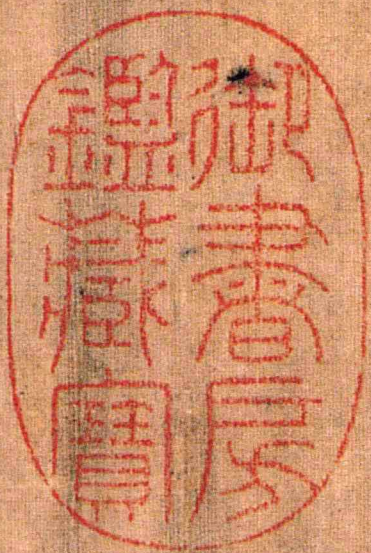 御書房
鑑藏寶